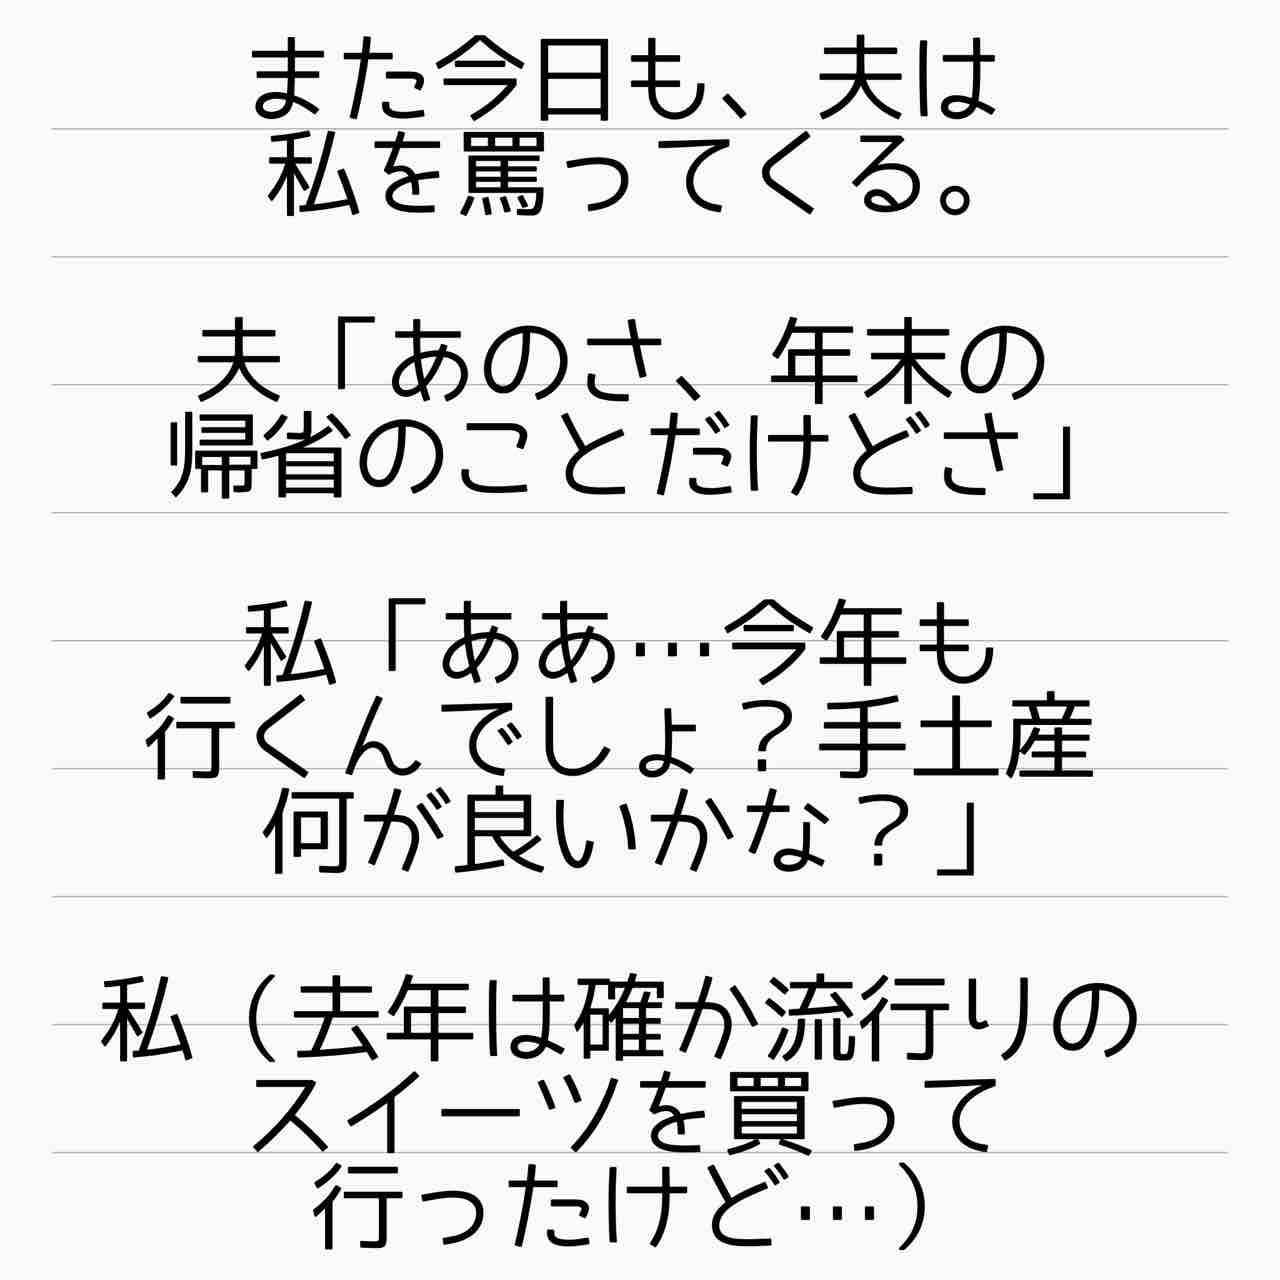 また今日も、夫は
私を罵ってくる。
夫「あのさ、年末の
帰省のことだけどさ」
私「ああ…今年も
行くんでしょ？手土産
何が良いかな？」
私（去年は確か流行りの
スイーツを買って
行ったけど…）